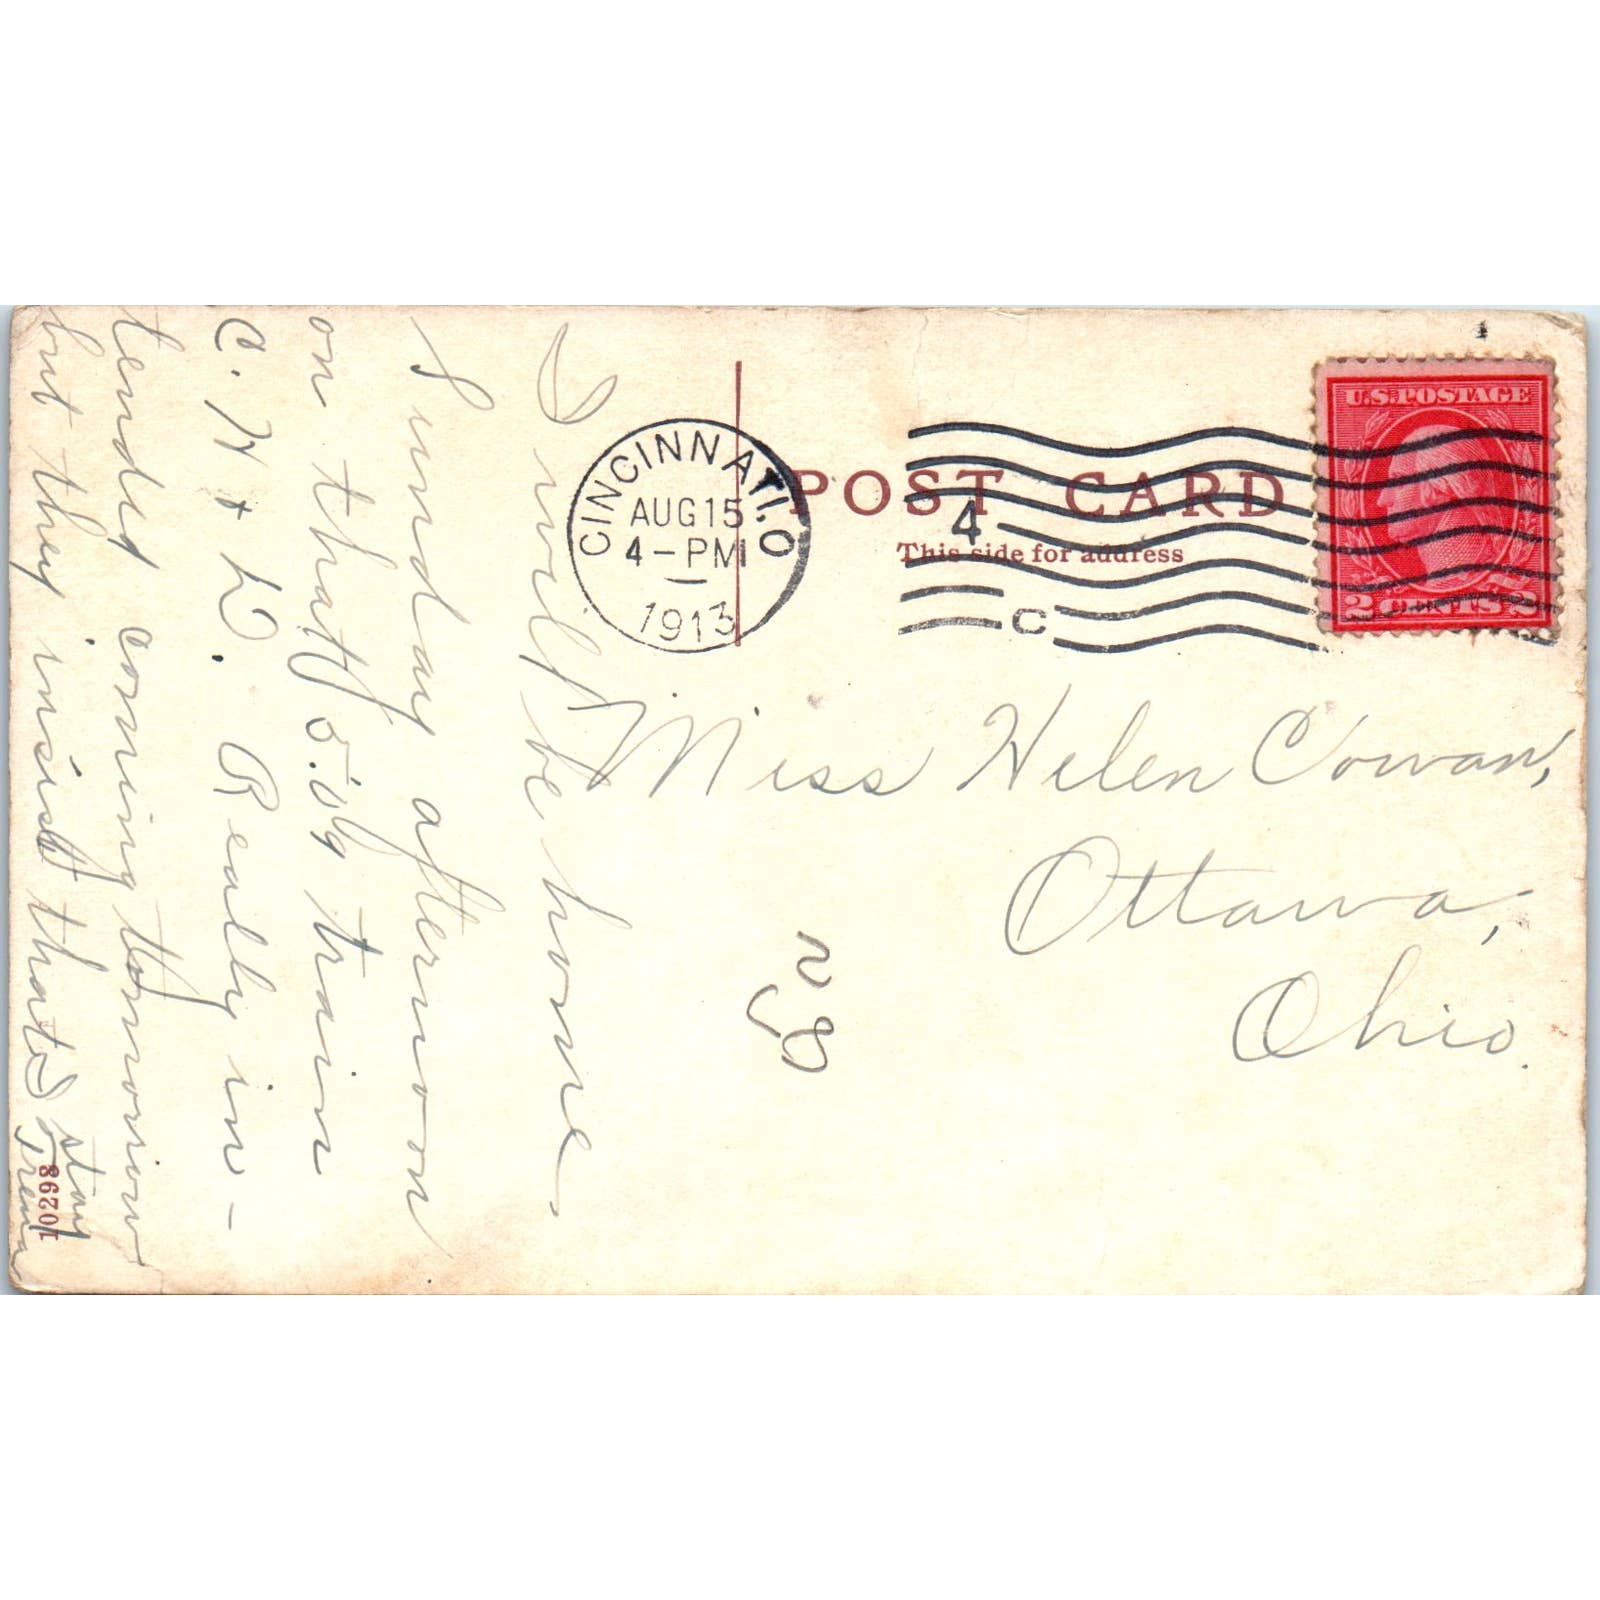 I will be home
Sunday afternoon
on that 5:09 train
C. H & D. Really in-
tended coming tomorrow
but they insist that I stay
CINCINNATI, O
AUG 15
4-PM
1913
4
C
U.S. POSTAGE
2 CENTS 2
POST CARD
This side for address
Miss Helen Cowan,
Ottawa,
Ohio.
10298